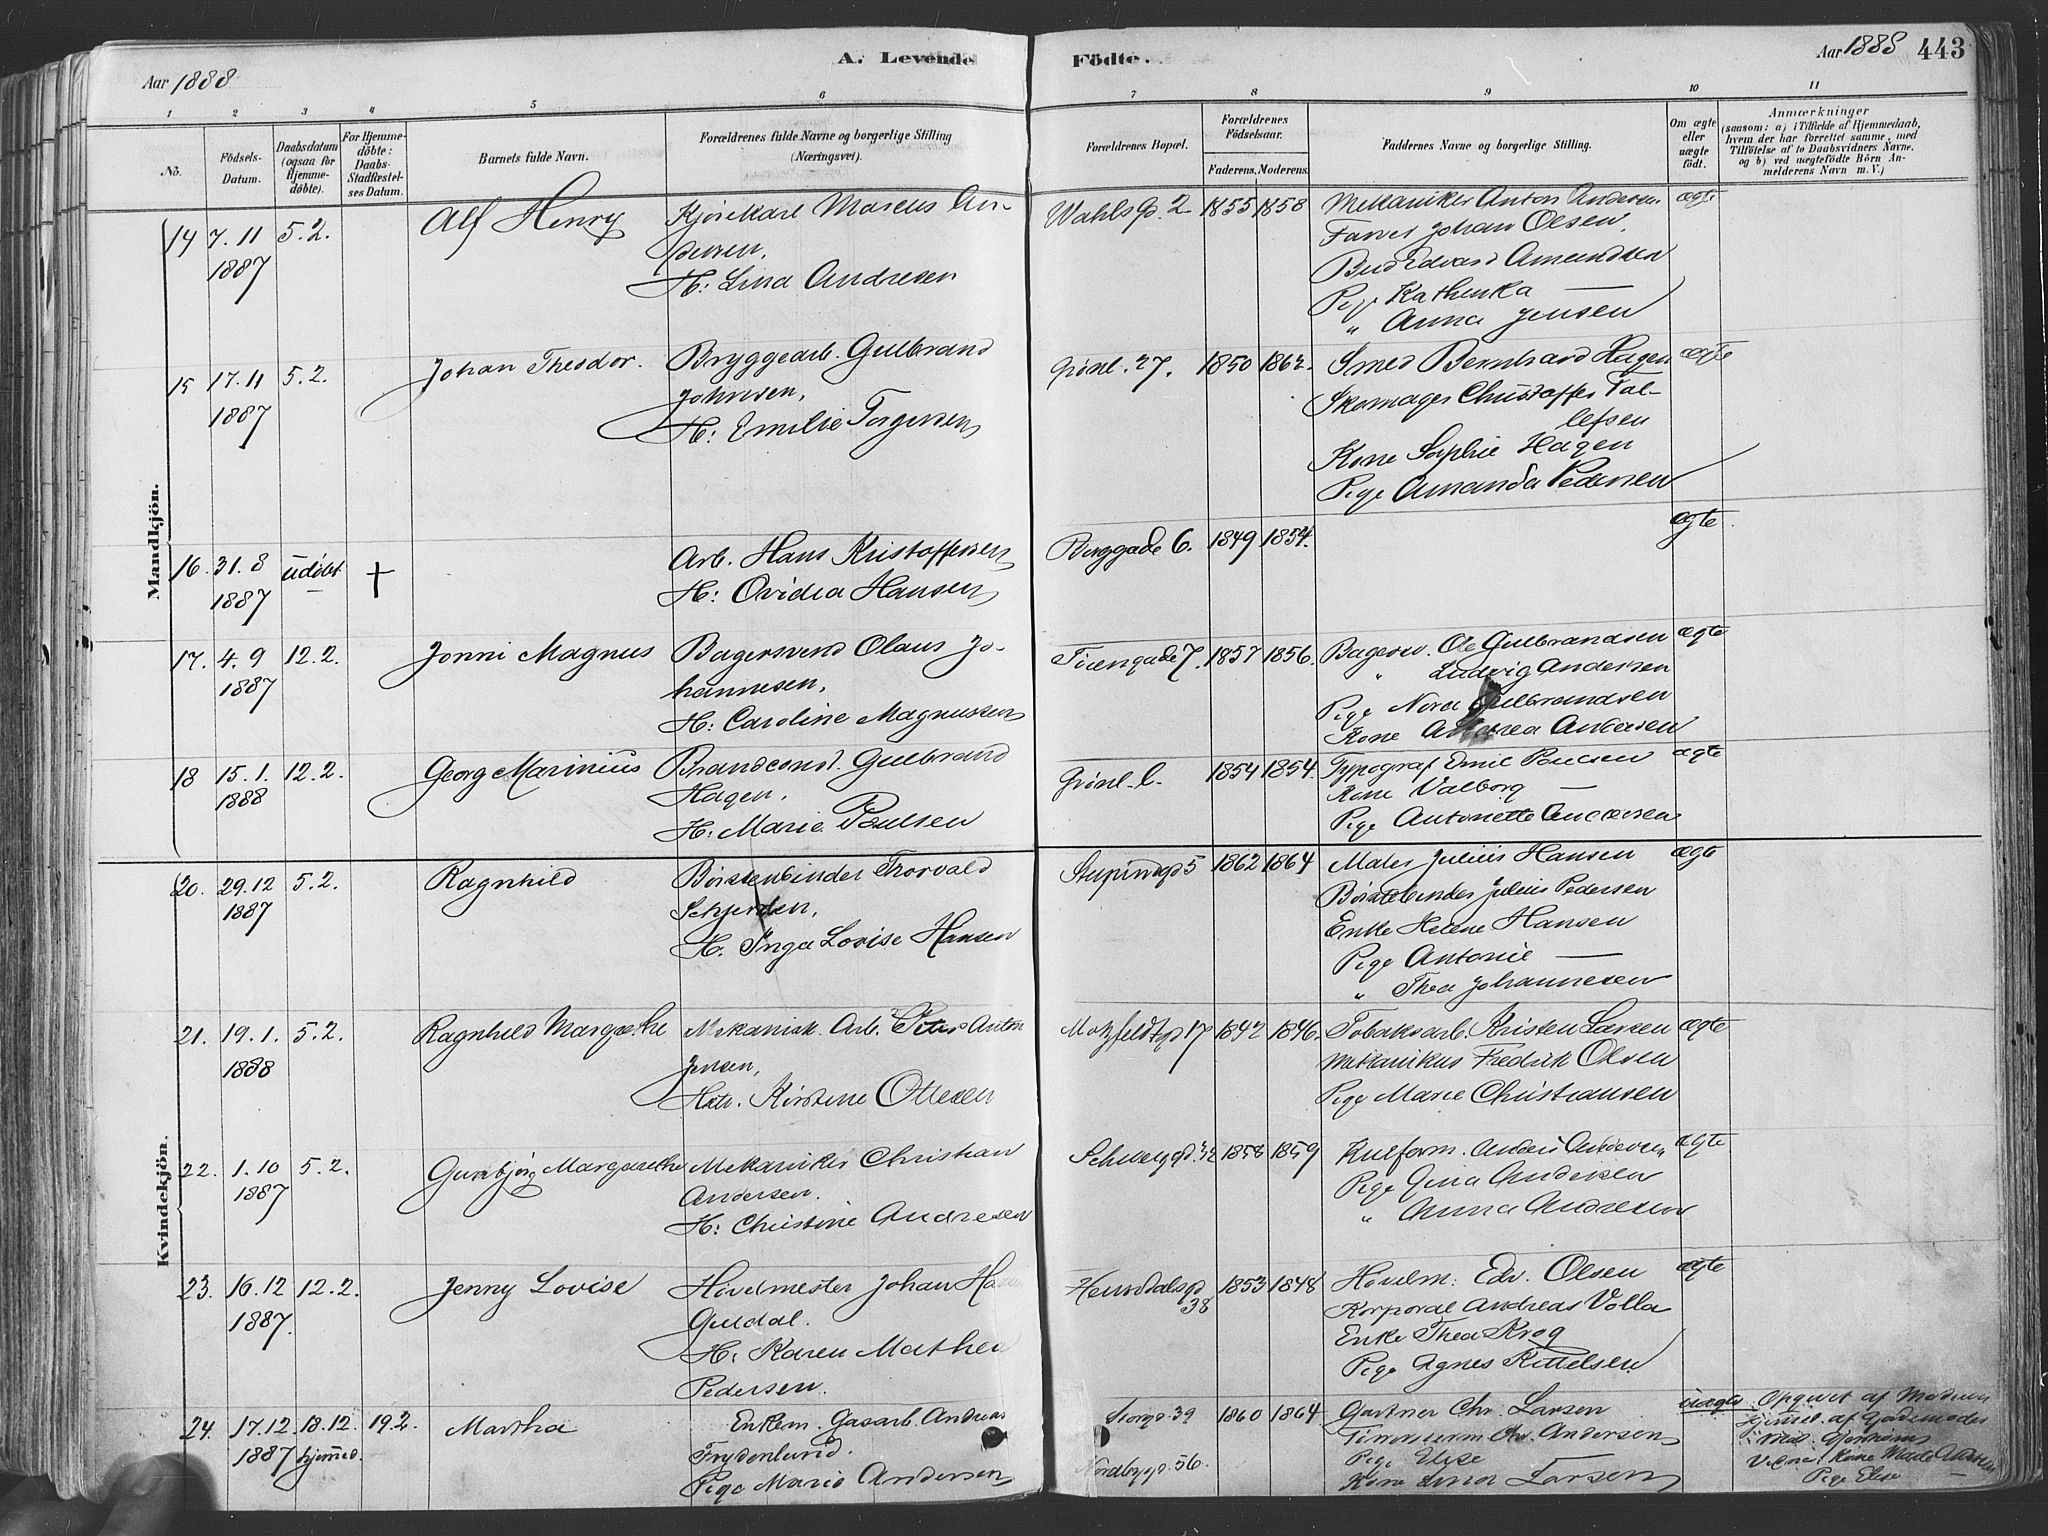 Aar 1888
A. Levende
Födte.
Aar 1888
443
1 2 3 4 5 6 7 8 9 10 11
No.
Födsels-Datum.
Daabsdatum (ogsaa for Hjemme-döbte).
For Hjemme-döbte: Daabs-Stadfæstel-ses Datum.
Barnets fulde Navn.
Forældrenes fulde Navne og borgerlige Stilling (Næringsvei).
Forældrenes Bopæl.
Forældrenes Födselsaar.
Faderens. Moderens.
Faddernes Navne og borgerlige Stilling.
Om ægte eller uægte födt.
Anmærkninger
(saasom: a) i Tilfælde af Hjemmedaab, hvem der har forrettet samme, med Tilföielse af to Daabsvidners Navne, og b) ved uægtefödte Börn An-melderens Navn m. V.)
Mandkjön.
14 7.11 1887 5.2. Alf Henry
Kjørekarl Marcus An-
dersen,
H: Lina Andresen
Wahlsgd. 2 1855 1858
Mekaniker Anton Andersen
Farver Johan Olsen,
Bud Edvard Amundsen
Pige Kathinka —
" Anna Jensen
ægte
15 17.11 1887 5.2. Johan Theodor.
Bryggearb. Gulbrand
Johnsen,
H: Emilie Torgersen
Grønl. 27. 1850 1862.
Smed Bernhard Hagen
Skomager Christoffer Tol-
lefsen
Kone Sophie Hagen
Pige Amanda Pedersen
ægte
16. 31.8 1887 udøbt †
Arb. Hans Kristoffersen
H: Ovidia Hansen
Borggade 6. 1849 1854.
ægte
17. 4.9 1887 12.2. Jonni Magnus
Bagersvend Olaus Jo-
hannesen,
H: Caroline Magnussen
Tøiengade 7. 1857 1856.
Bagersv. Ole Gulbrandsen
" Ludvig Andersen
Pige Nora Gulbrandsen
Kone Andrea Andersen
ægte
18 15.1. 1888 12.2. Georg Marinius
Brandconst. Gulbrand
Hagen,
H: Marie Poulsen
Grønl. 1854 1854.
Typograf Emil Poulsen
Kone Valborg —
Pige Antonette Andersen
ægte
Kvindekjön.
20. 29.12 1887 5.2. Ragnhild
Børstenbinder Thorvald
Schjerden,
H. Inga Lovise Hansen
Stupindgd 5 1862 1864
Maler Julius Hansen
Børstebinder Julius Pedersen
Enke Helene Hansen
Pige Antonie —
" Thea Johannesen
ægte
21. 19.1. 1888 5.2. Ragnhild Margrethe
Mekanisk. Arb. Peter Anton
Jensen,
Hstr. Kirstine Ottesen
Motzfeldtsgd 17 1842 1846.
Tobaksarb. Kristen Larsen
Mekanikus Fredrik Olsen
Pige Marie Christiansen
ægte
22. 1.10 1887 5.2. Gunbjørg Margarethe
Mekaniker Christian
Andersen.
H: Christine Andresen
Schweigd. 32 1858 1859
Kulform. Anders Andersen
Pige Gina Andersen
" Anna Andresen
ægte
23. 16.12 1887. 12.2. Jenny Lovise
Hovedmester Johan
Guldal.
H: Karen Mathea
Pedersen.
Heimdalsgd 38 1853 1848
Hovedm. Edv. Olsen
Korporal Andreas Volla
Enke Thea Krog
Pige Agnes Kittelsen
ægte
24. 17.12 1887 18.12. hjemmed. 19.2. Martha
Enkem. Gasarb. Andreas
Frydenlund.
Pige Marie Andersen
Storgd. 39
Nordbygd. 56. 1860 1864
Gartner Chr. Larsen
Tømmerm Chr. Andersen
Pige Elise
Kone Lina Larsen
uægte
Opgivet af Moderen
Hjemmed. af Jordemoder
Pige Elise —